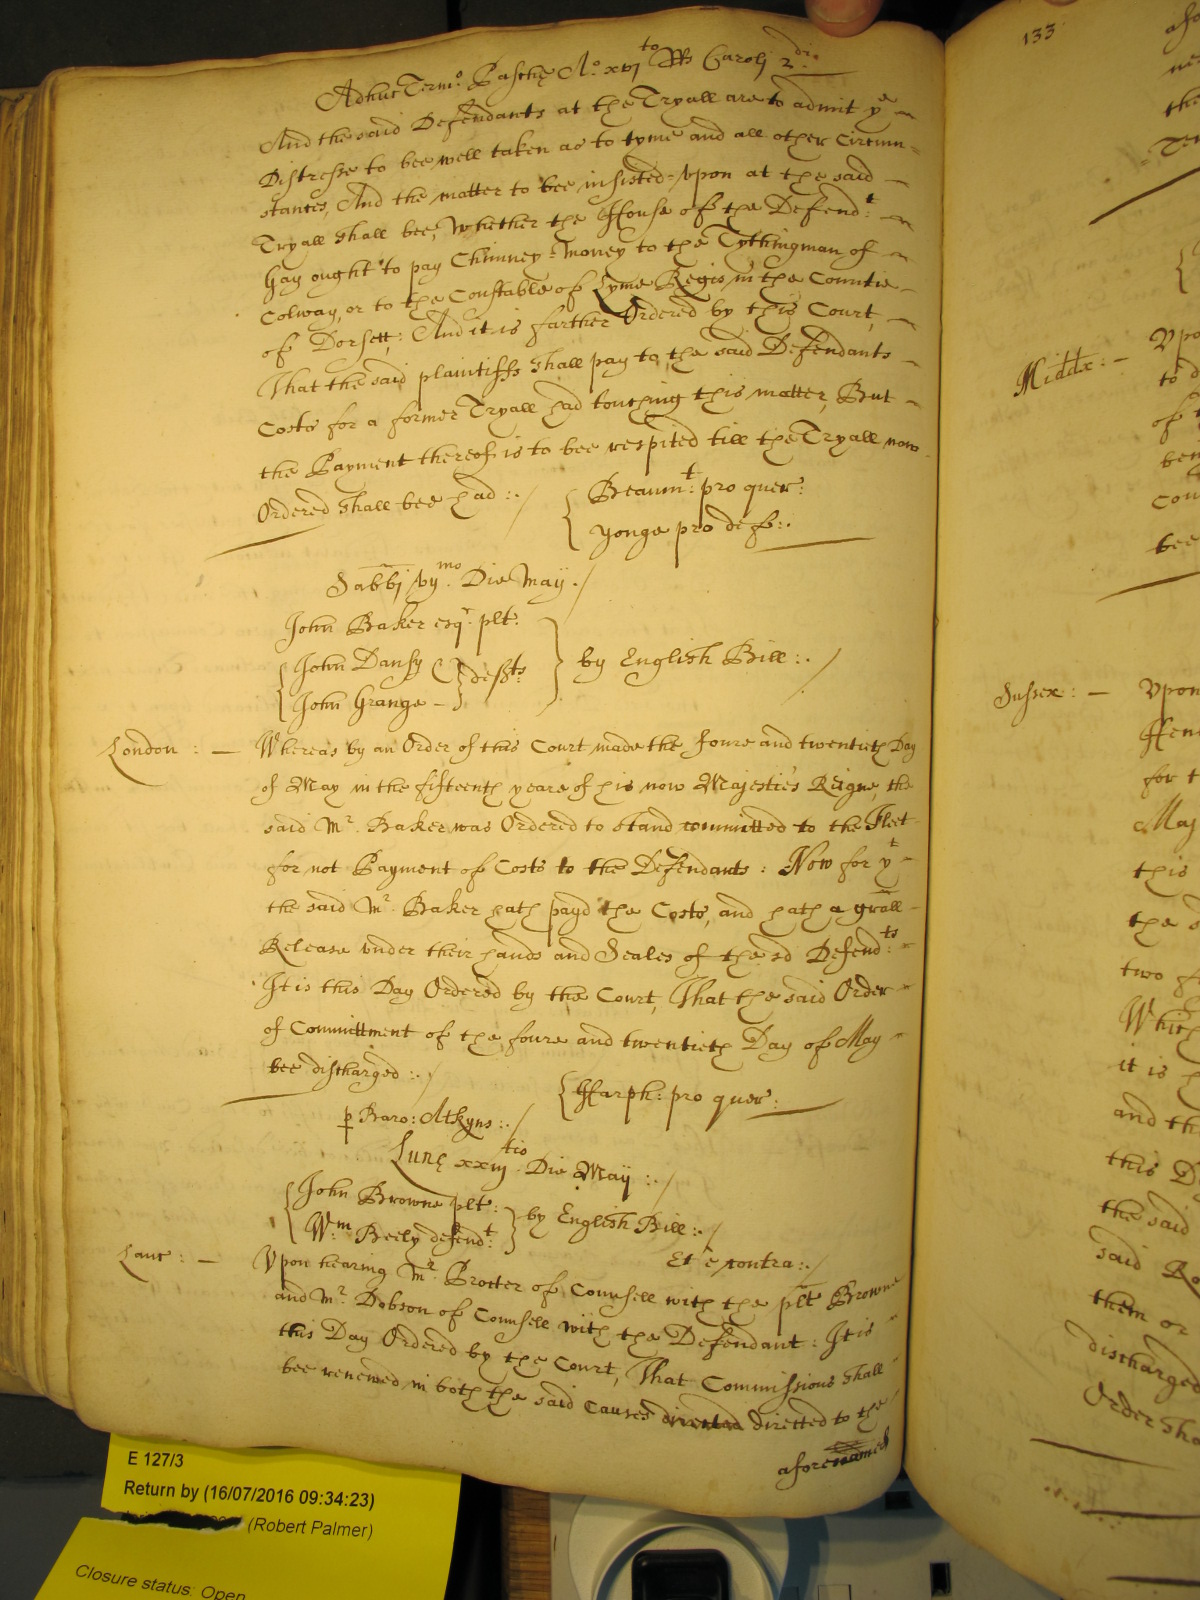 Adhuc Termo Paschę Ao xvjto RRs Caroli 2di
And the said Defendants at the Tryall are to admit ye
Distresse to bee well taken as to tyme and all other Circum=
stances, And the matter to bee insisted=upon at the said
Tryall shall bee, Whether the House of the Defendt:
Gay ought to pay Chimney=Money to the Tythingman of
Colway, or to the Constable of Lyme Regis, in the Countie
of Dorsett; And it is farther Ordered by this Court,
That the said plaintiffs shall pay to the said Defendants
Costs for a former Tryall had touching this matter, But
the Payment thereof is to bee respited till the Tryall now
Ordered shall bee had :./
Beaumt: pro quer:
Yonge pro def:.
Sabbi vijmo Die May ./
John Baker esqr plt:
John Dansy
John Grange
defts
by English Bill :. /
London : — Whereas by an Order of this Court made the foure and twentieth Day
of May in the fifteenth yeare of his now Majesties Reigne, the
said Mr. Baker was Ordered to stand committed to the Fleet
for not Payment of Costs to the Defendants : Now for yt
the said Mr. Baker hath payd the Costs, and hath a grall
Release under their hands and Seales of the sd Defendts:
It is this Day Ordered by the Court, That the said Order
of Committment of the foure and twentieth Day of May
bee discharged :. /
Harph: pro quer:
p Baro: Atkyns :. /
Lunę xxiijtio Die May :. /
John Browne plt:
Wm: Beely defendt:
by English Bill :. /
Et è contra :. /
Lanc : — Upon hearing Mr Brocter of Counsell with the plt Browne
and Mr. Dobson of Counsell with the Defendant : It is
this Day Ordered by the Court, That Commissions shall
bee renewed in both the said Causes directed to the
aforenamed
133
Middx : —
Upo
to d
of
ben
Cou
bee
Sussex : — Upon
for t
May
this
the s
two
Which
it is
and th
this D
the said
said Ro
them or
discharged
Order sha
E 127/3
Return by (16/07/2016 09:34:23)
(Robert Palmer)
Closure status: Open